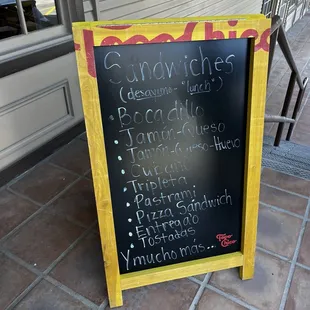 Sandwiches
(desayuno-'lunch')
Bocadillo
Jamón-Queso
Jamón-Queso-Huevo
Cubano
Tripleta
Pastrami
Pizza Sandwich
Entregao
Tostadas
Y mucho más...